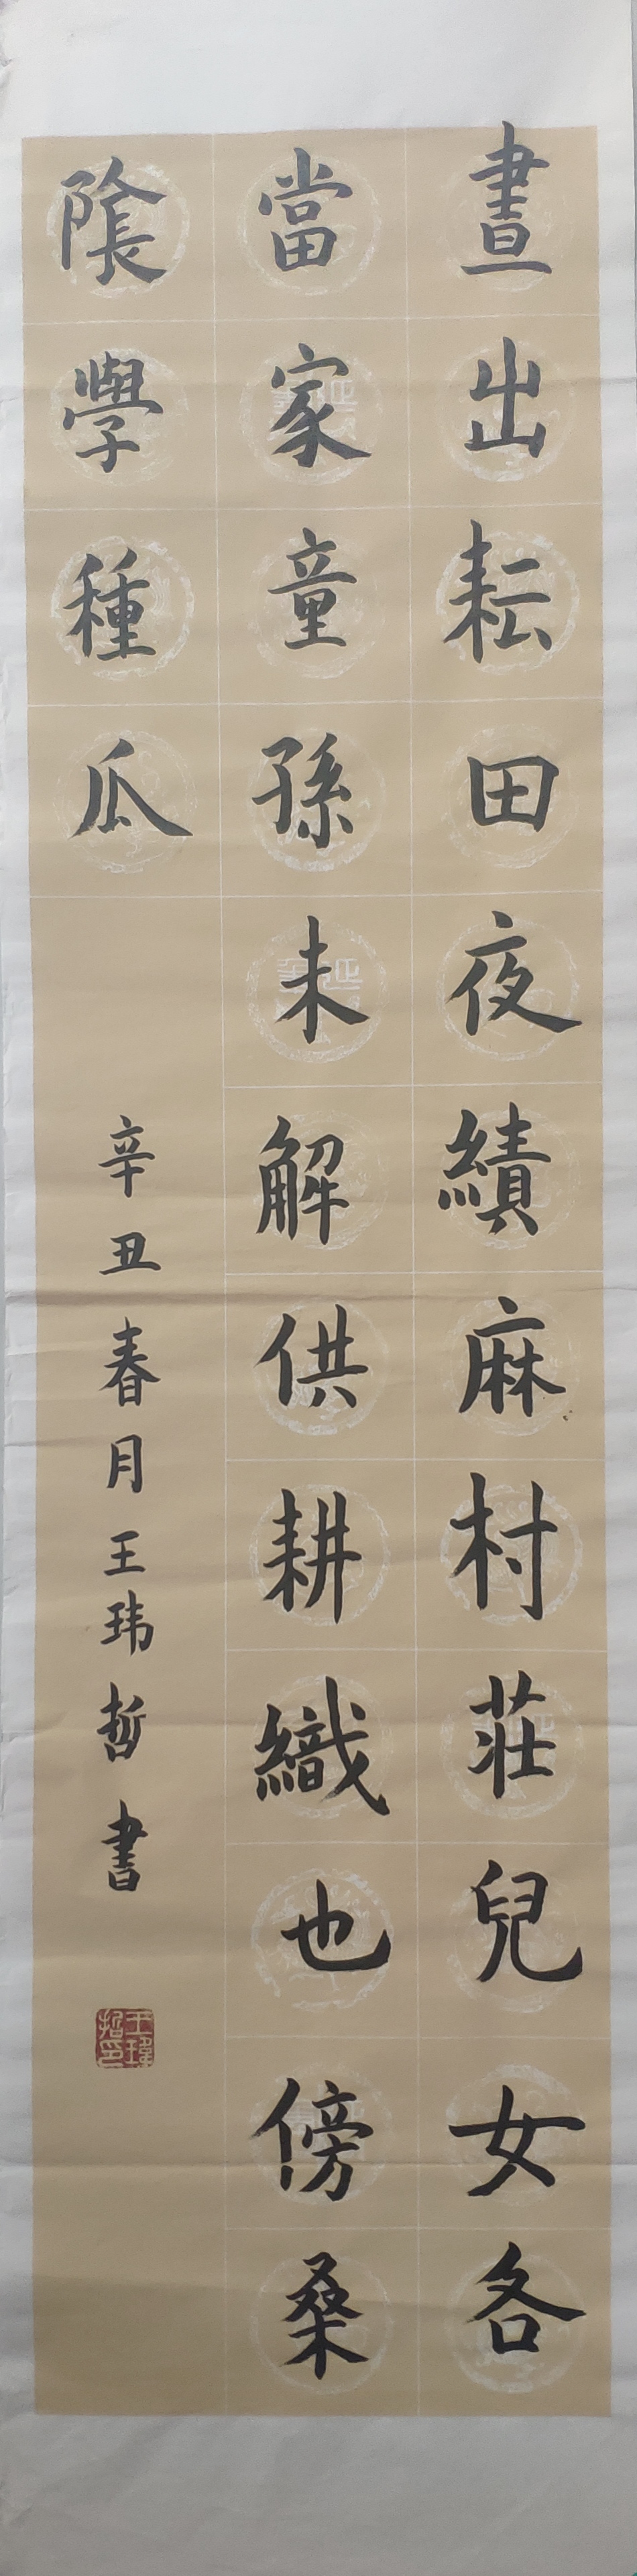 晝出耘田夜績麻村莊兒女各
當家童孫未解供耕織也傍桑
陰學種瓜
辛丑春月王玮哲書